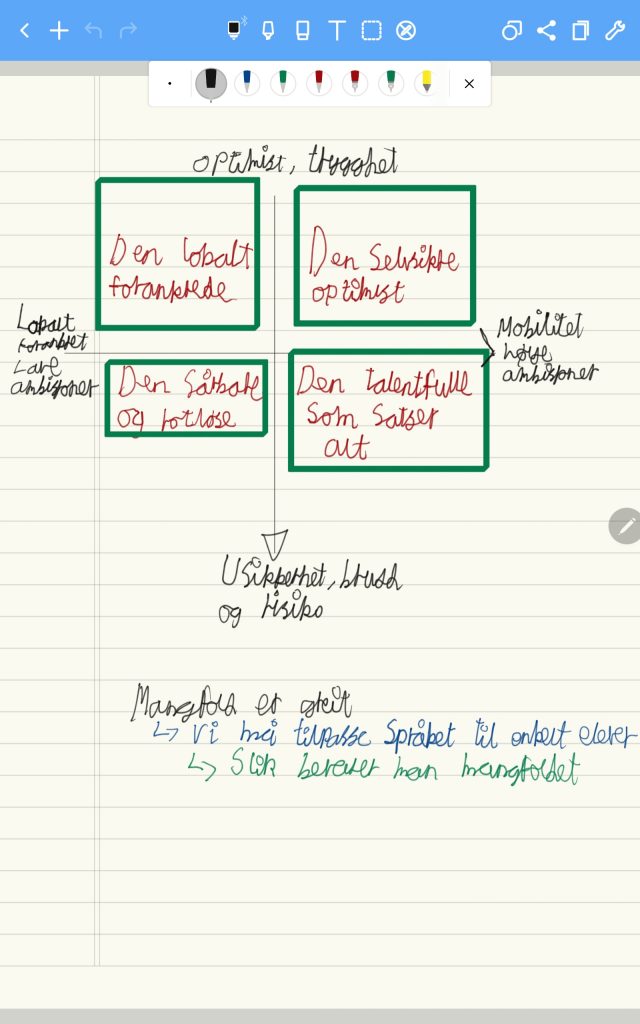 optimist, trygghet
Den lokalt
forankrede
Den Selvsikre
optimist
Lokalt
forankret
Lave
ambisjoner
Mobilitet
høye
ambisjoner
Den Sårbare
og rotløse
Den talentfulle
som satser
alt
Usikkerhet, brudd
og risiko
Mangfold er greit
↳ Vi må tilpasse språket til enkelt elever
↳ Slik bevarer man mangfoldet